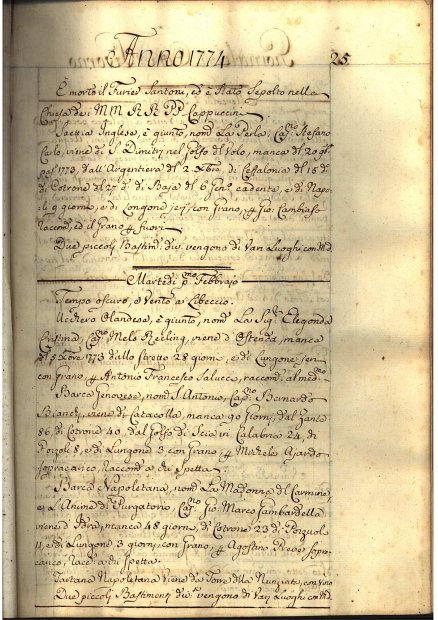 Anno 1774
25
È morto il Furier Santoni, ed è stato sepolto nella
Chiesa de: M M R R PP Cappuccini
Saettia Inglese, è giunto, nom.ª La Perla, Cap: Stefano
Carlo, viene di S. Dimitry nel Golfo del Volo, manca del 20
1773, dall'Argentiera del 2 Xbre, di Cefalonia del 15 d:
di Cotrone del 27 d: di Baja del 6 Gen: cadente, e di Napo
li 9 giorni, e di Longone jeri con Grano, # Gio: Cambiaso
Raccom: ed il Grano # fuori
Due piccoli Bastim: div: vengono di Vari Luoghi con Md.
Martedi p.mo Febbrajo
Tempo oscuro, e Vento a Libeccio.
Olandese, è giunto, nom.ª La Sig: Elegonda
Cristina, Cap:no Melo Reeling, viene d'Ostenda, manca
del 5 Xbre 1773 dallo Stretto 28 giorni, e di Lungone jeri
con Grano, # Antonio Francesco Salucci, raccom: al med:mo
Barca Genovese, nom: S. Antonio, Cap:no Bernardo
Bianchi, viene di Catacolla, manca 90 Giorni, dal Zante
86, di Cotrone 40, dal Golfo di in Calabria 24, di
Pozzoli 8, e di Lungone 3 con Grano, # Michele Ajardo
sopracarico, Raccom: a, chi spetta.
Barca Napoletana, nom: La Madonna del Carmine,
e L'Anime del Purgatorio Cap:no Gio: Marco Lambardella
viene d' manca 48 giorni, di Cotrone 23 d: Pozzuol
11, e di Lungone 3 giorni con Grano, # Agostino sopra
carico, Racc: a chi spetta.
Tartana Napoletana viene da Torre della Nunziata, con Vino
Due piccoli Bastimenti div: vengono di Vari Luoghi con Md.